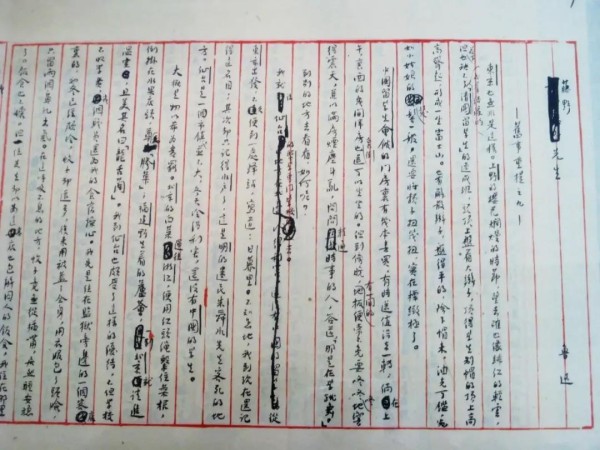 藤野先生
——舊事重提之九——
魯迅
東京也無非是這樣。上野的櫻花爛熳的時節，望去確也像緋紅的輕雲，
但花下也缺不了成群結隊的「清國留學生」的速成班，頭頂上盤着大辮子，頂得學生制帽的頂上高
高聳起，形成一座富士山。也有解散辮子，盤得平的，除下帽來，油光可鑑，宛
如小姑娘的髮髻一般，還要將脖子扭幾扭。實在標緻極了。
中國留學生會館的門房裏有幾本書買，有時還值得去一轉；倘在上
午，裏面的幾間洋房裏倒也還可以坐坐的。但到傍晚，有一間的地板便常不免要咚咚咚地響
得震天，兼以滿房煙塵斗亂；問問精通時事的人，答道，「那是在學跳舞。」
到別的地方去看看，如何呢？
我就往仙台的醫學專門學校去。從
東京出發，不久便到一處驛站，寫道：日暮里。不知怎地，我到現在還記
得這名目。其次卻只記得水戶了，這是明的遺民朱舜水先生客死的地
方。仙台是一個市鎮，並不大；冬天冷得利害；還沒有中國的學生。
大概是物以希爲貴罷。北京的白菜運往浙江，便用紅頭繩繫住菜根，
倒掛在水果店頭，尊爲「膠菜」；福建野生着的蘆薈，一到北京就請進
溫室，且美其名曰「龍舌蘭」。我到仙台也頗受了這樣的優待，不但學校
不收學費，幾個職員還爲我的食宿操心。我先是住在監獄旁邊的一個客
店裏的，初冬已經頗冷，蚊子卻還多，後來用被蓋了全身，用衣服包了頭臉，
只留兩個鼻孔出氣。在這呼吸不息的地方，蚊子竟無從插嘴，居然睡安穩
了。飯食也不壞。但一位先生卻以爲這客店也包辦囚人的飯食，我住在那里